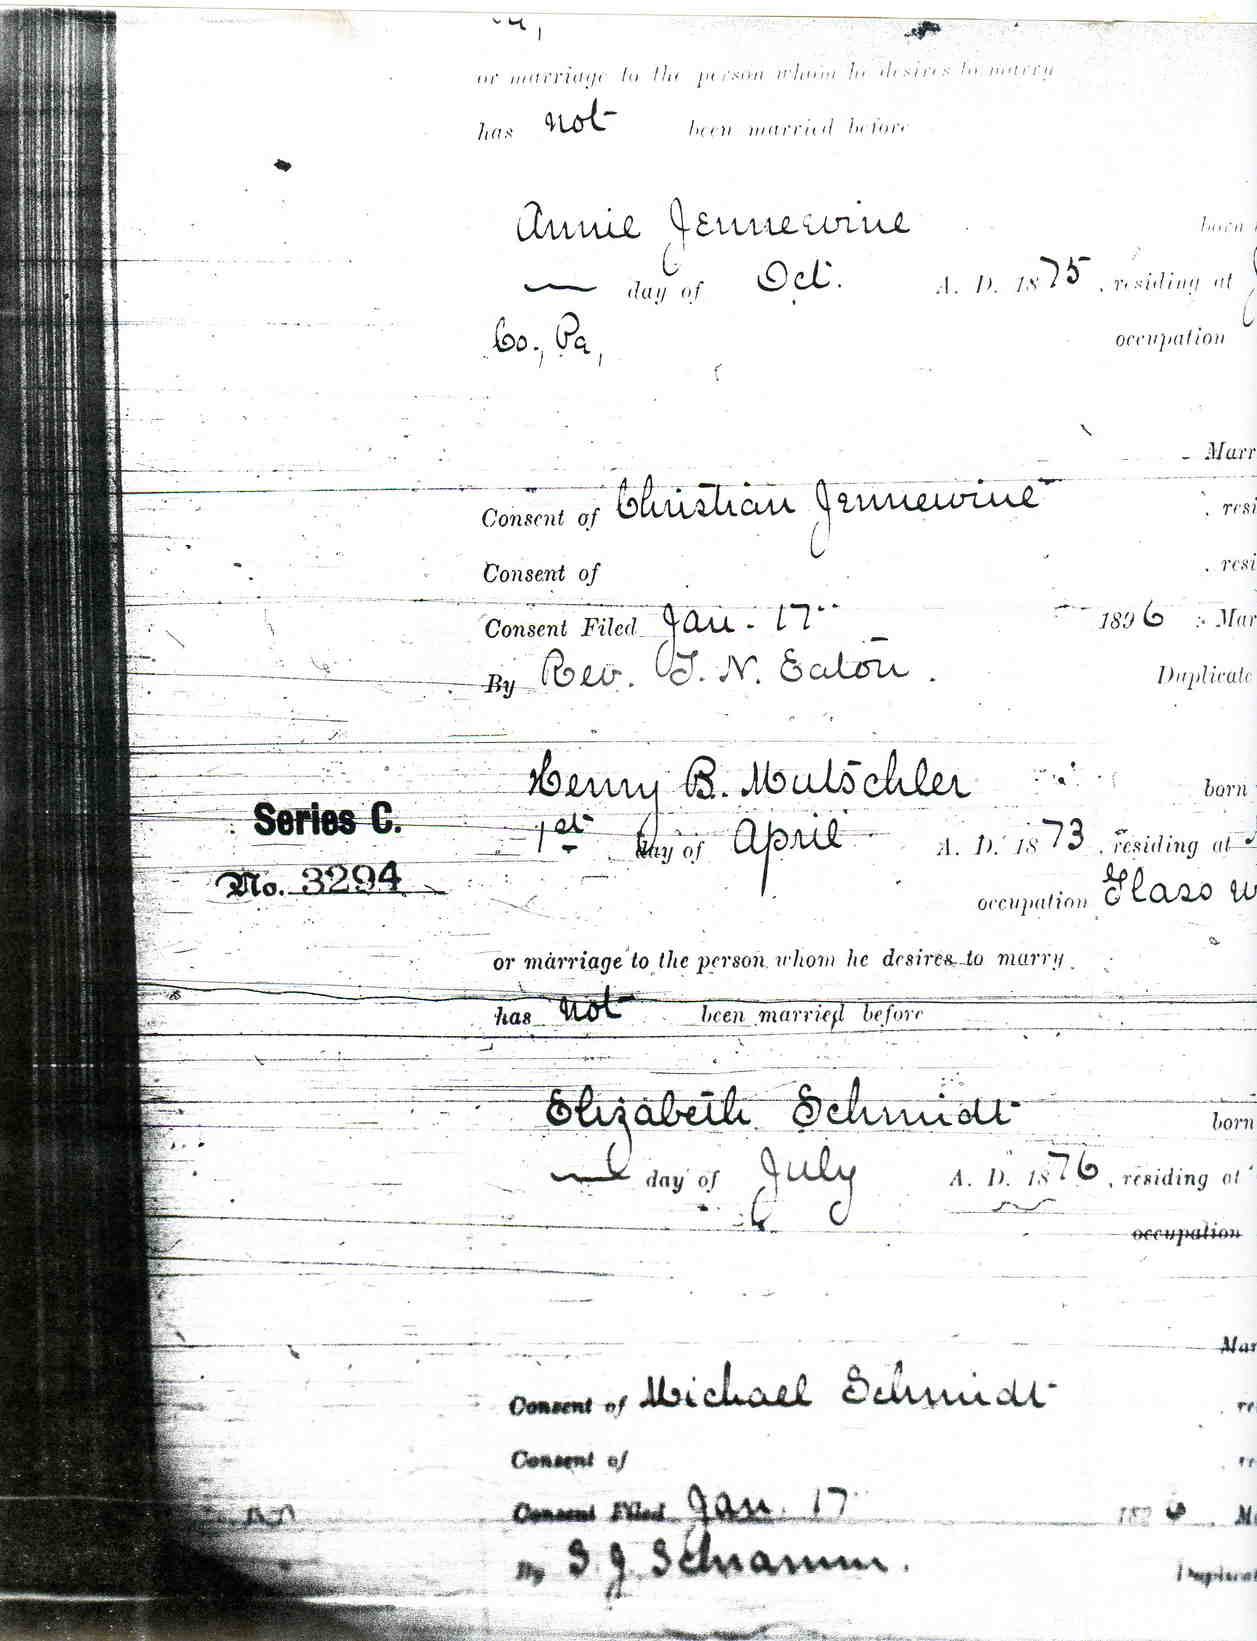 or marriage to the person whom he desires to marry
has not been married before
Annie Jennewine born
— day of Oct. A. D. 1875, residing at
Co., Pa, occupation
Marr
Consent of Christian Jennewine, resi
Consent of , resi
Consent Filed Jan. 17 1896 Mar
By Rev. T. N. Eaton. Duplicate
Henry B. Mutschler born
Series C. 1st day of April A. D. 1873, residing at
No. 3294 occupation Glass w
or marriage to the person whom he desires to marry
has not been married before
Elizabeth Schmidt born
— day of July A. D. 1876, residing at
occupation
Mar
Consent of Michael Schmidt, re
Consent of
Consent Filed Jan. 17 1896 Ma
By S. J. Schramm. Duplicat